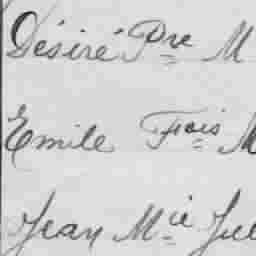 Désiré Pre M
Emile Fois M
Jean Mie